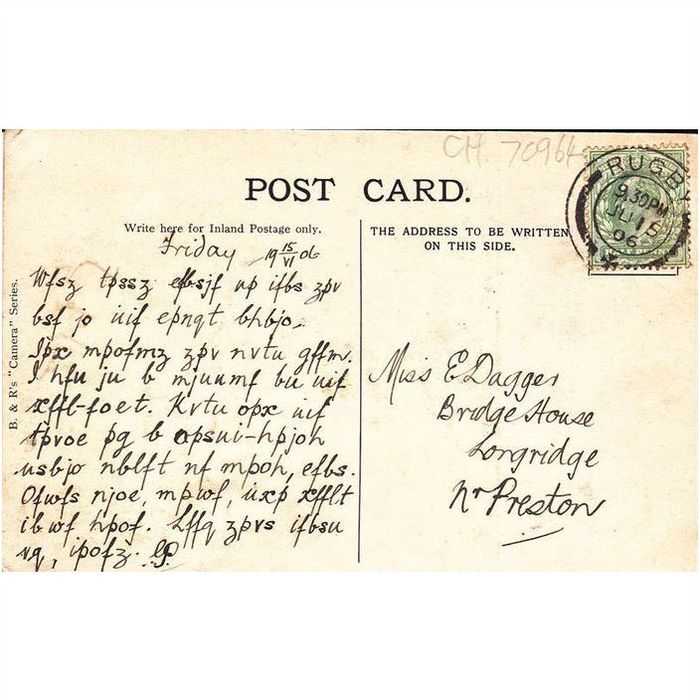 CH. 70964
POST CARD.
Write here for Inland Postage only.
THE ADDRESS TO BE WRITTEN
ON THIS SIDE.
RUGBY
9.30PM
JU 15
06
B. & R's "Camera" Series.
Friday 19 15/VI 06
Wfsz tpssz efbsjf up ifbs zpv
bsf jo uif evnqt bhbjo.
Ipx mpofmz zpv nvtu gffm.
I hfu ju b mjuumf bu uif
xffl-foet. Kvtu opx uif
tpvoe pg b opsui-hpjoh
usbjo nblft nf mpoh, efbs.
Ofwfs njoe, mpwf, uxp xfflt
ibwf hpof. Lffq zpvs ifbsu
vq, ipofz.
Miss E Dagger
Bridge House
Longridge
Nr Preston